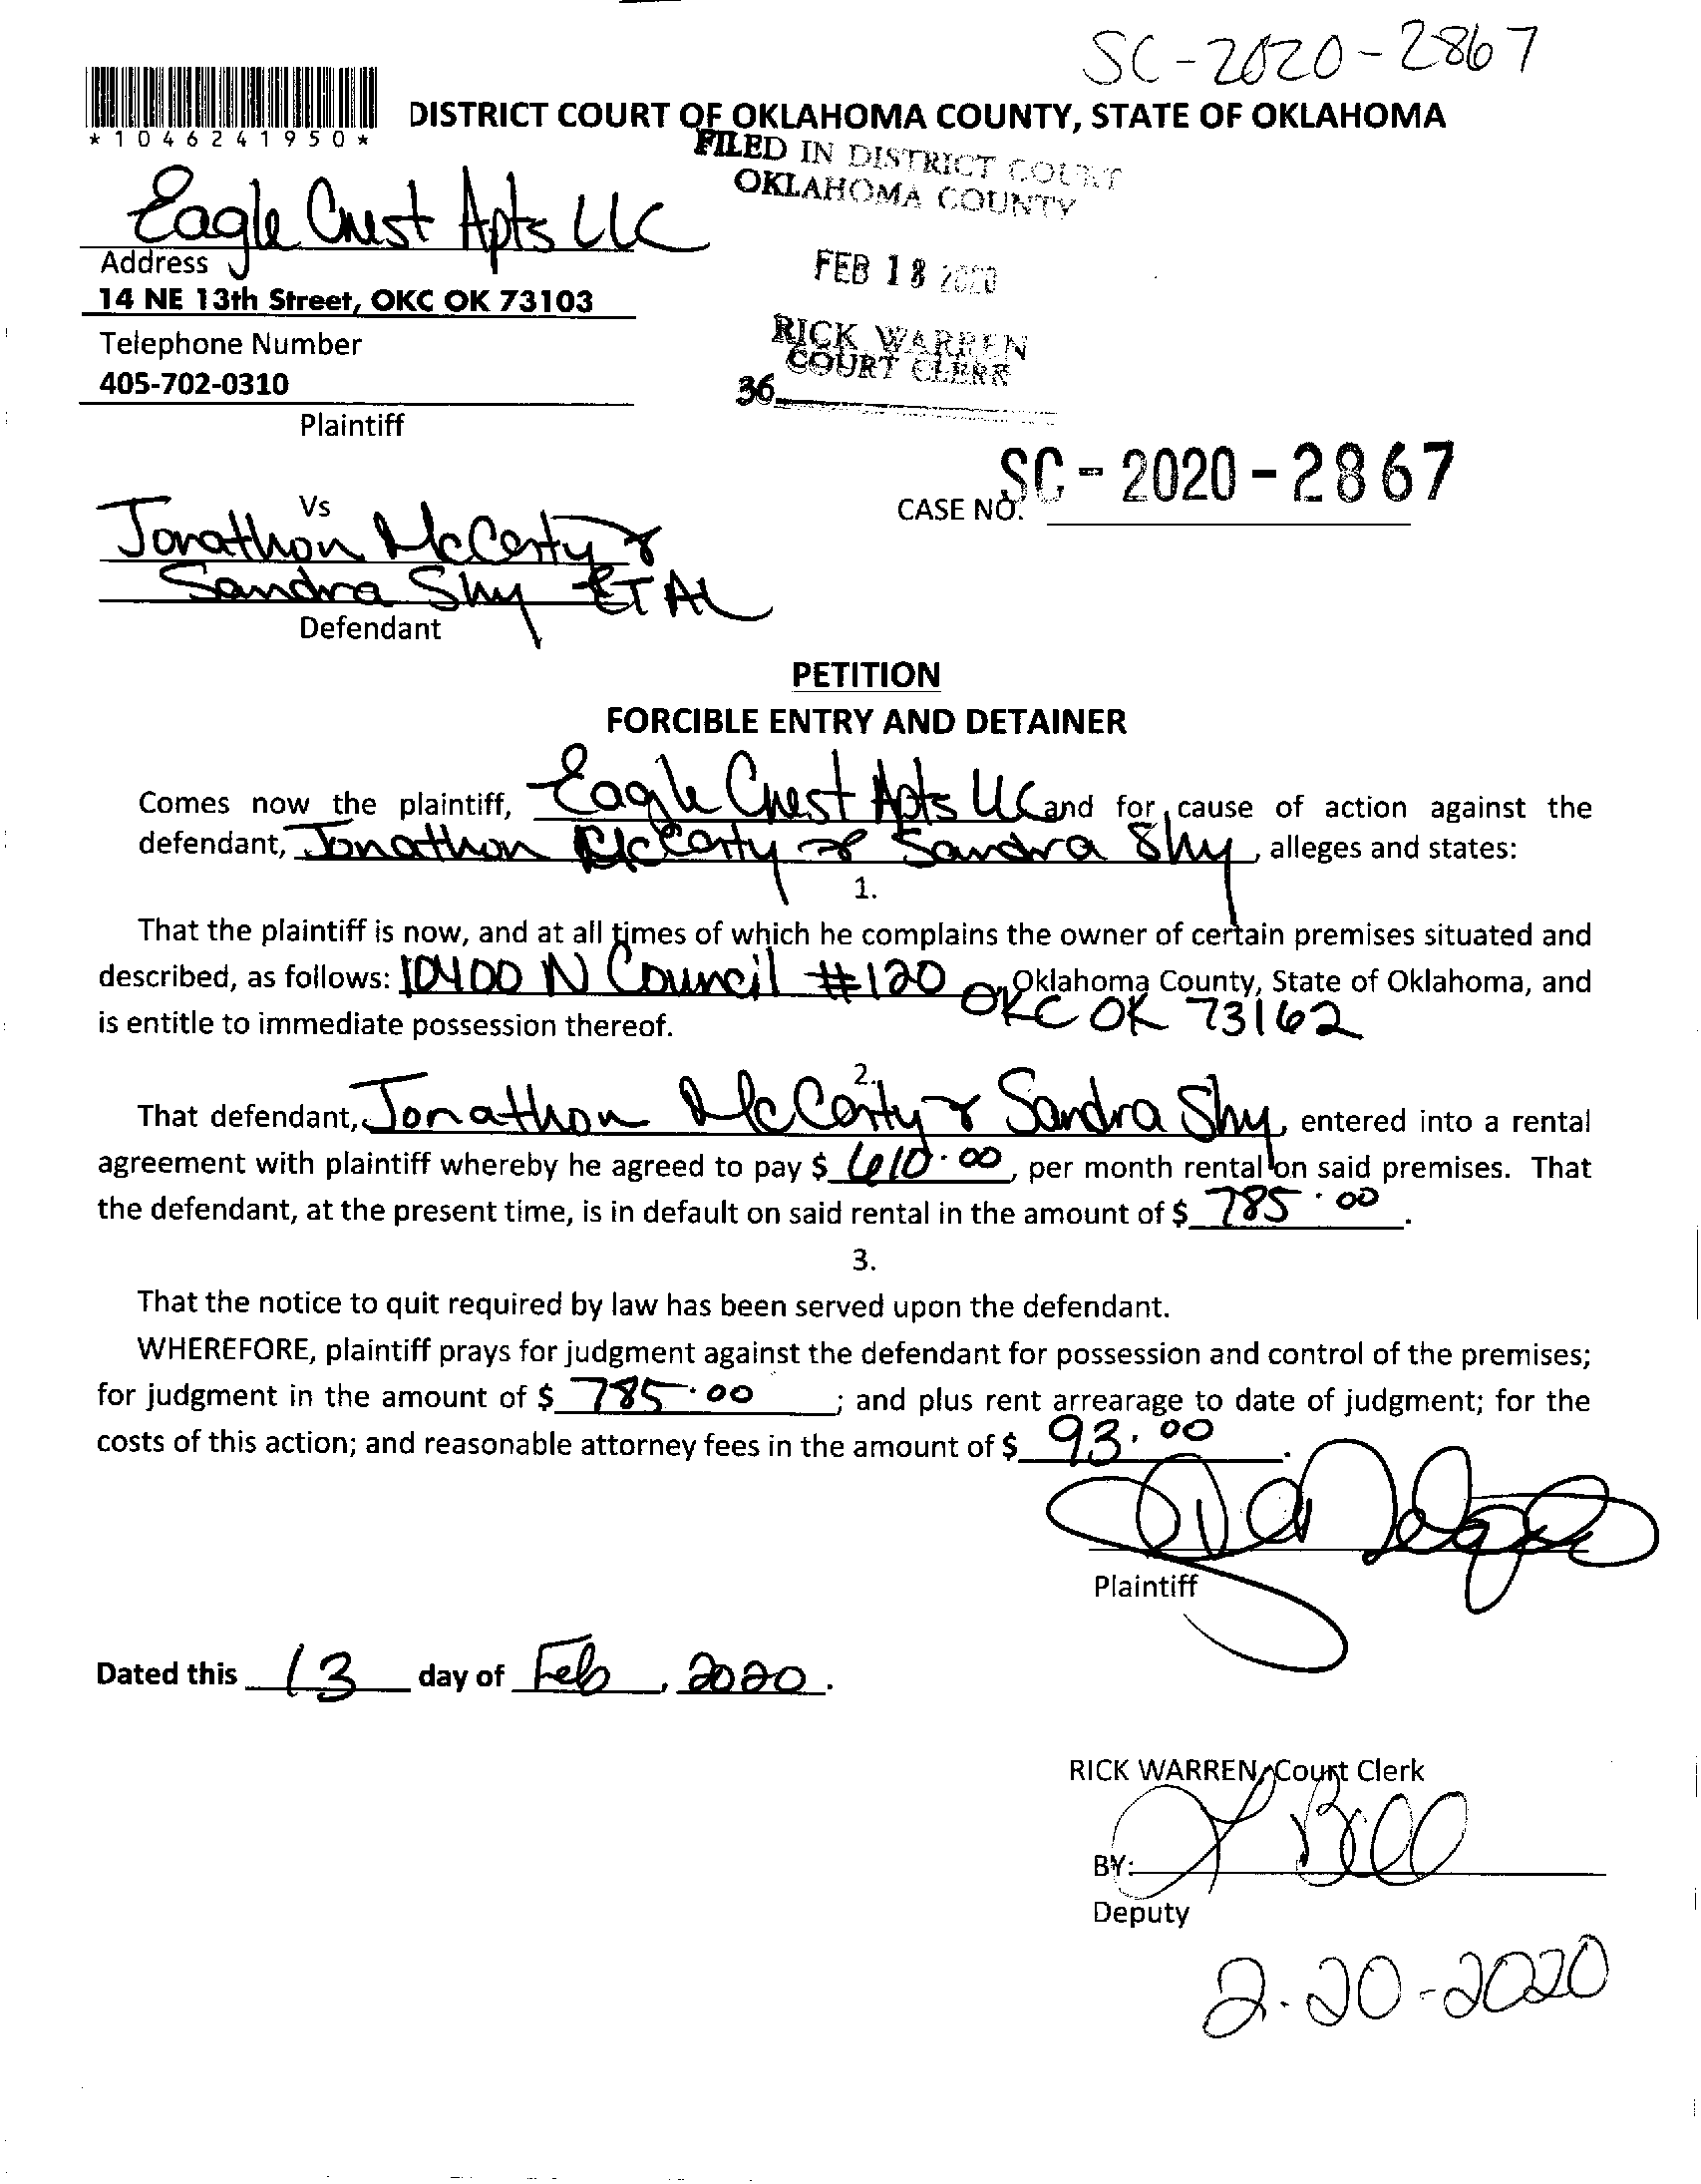 SC-2020-2867
*1046241950*
DISTRICT COURT OF OKLAHOMA COUNTY, STATE OF OKLAHOMA
FILED IN DISTRICT COURT
OKLAHOMA COUNTY
Eagle Crest Apts LLC
Address
14 NE 13th Street, OKC OK 73103
FEB 18 2020
Telephone Number
405-702-0310
RICK WARREN
COURT CLERK
36
Plaintiff
Vs
CASE NO. SC-2020-2867
Jonathon McCarty &
Sandra Shy ET AL
Defendant
PETITION
FORCIBLE ENTRY AND DETAINER
Comes now the plaintiff, Eagle Crest Apts LLC and for cause of action against the
defendant, Jonathon McCarty & Sandra Shy, alleges and states:
1.
That the plaintiff is now, and at all times of which he complains the owner of certain premises situated and
described, as follows: 10400 N Council #120 Oklahoma County, State of Oklahoma, and
OKC OK 73162
is entitle to immediate possession thereof.
2.
That defendant, Jonathon McCarty & Sandra Shy, entered into a rental
agreement with plaintiff whereby he agreed to pay $ 610.00, per month rental on said premises. That
the defendant, at the present time, is in default on said rental in the amount of $ 785.00.
3.
That the notice to quit required by law has been served upon the defendant.
WHEREFORE, plaintiff prays for judgment against the defendant for possession and control of the premises;
for judgment in the amount of $ 785.00 ; and plus rent arrearage to date of judgment; for the
costs of this action; and reasonable attorney fees in the amount of $ 93.00.
Plaintiff
Dated this 13 day of Feb, 2020.
RICK WARREN, Court Clerk
BY:
Deputy
2-20-2020